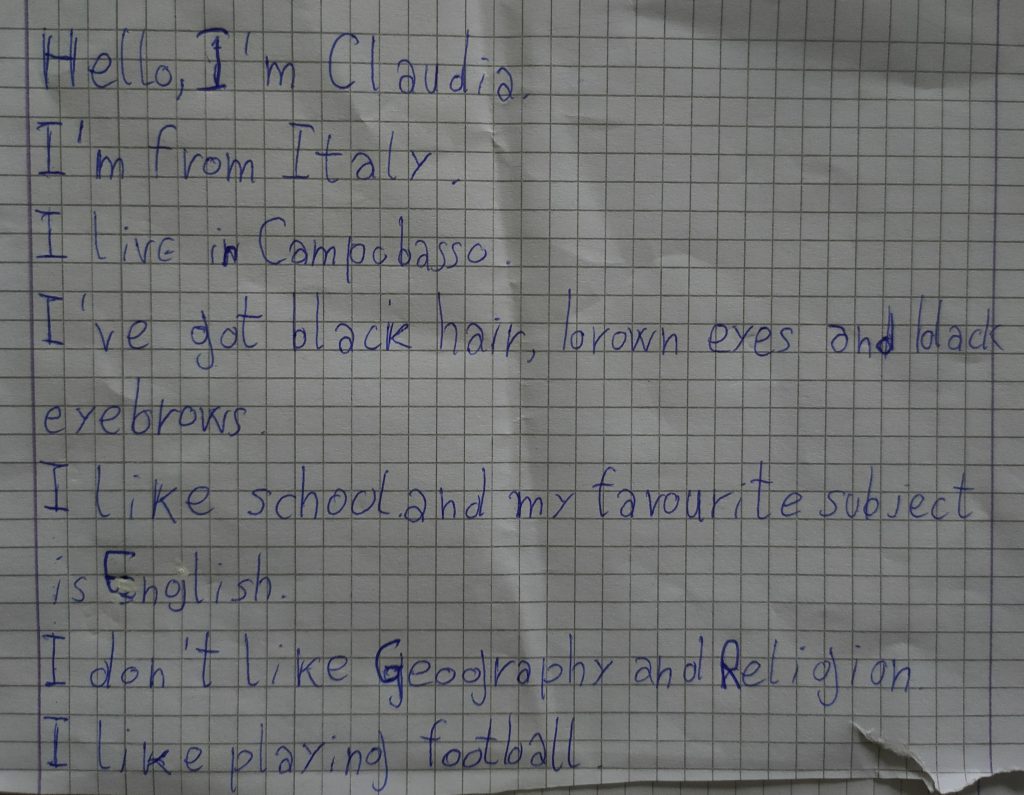 Hello, I'm Claudia.
I'm from Italy.
I live in Campobasso.
I've got black hair, brown eyes and black
eyebrows.
I like school.and my favourite subject
is English.
I don't like Geography and Religion.
I like playing football.